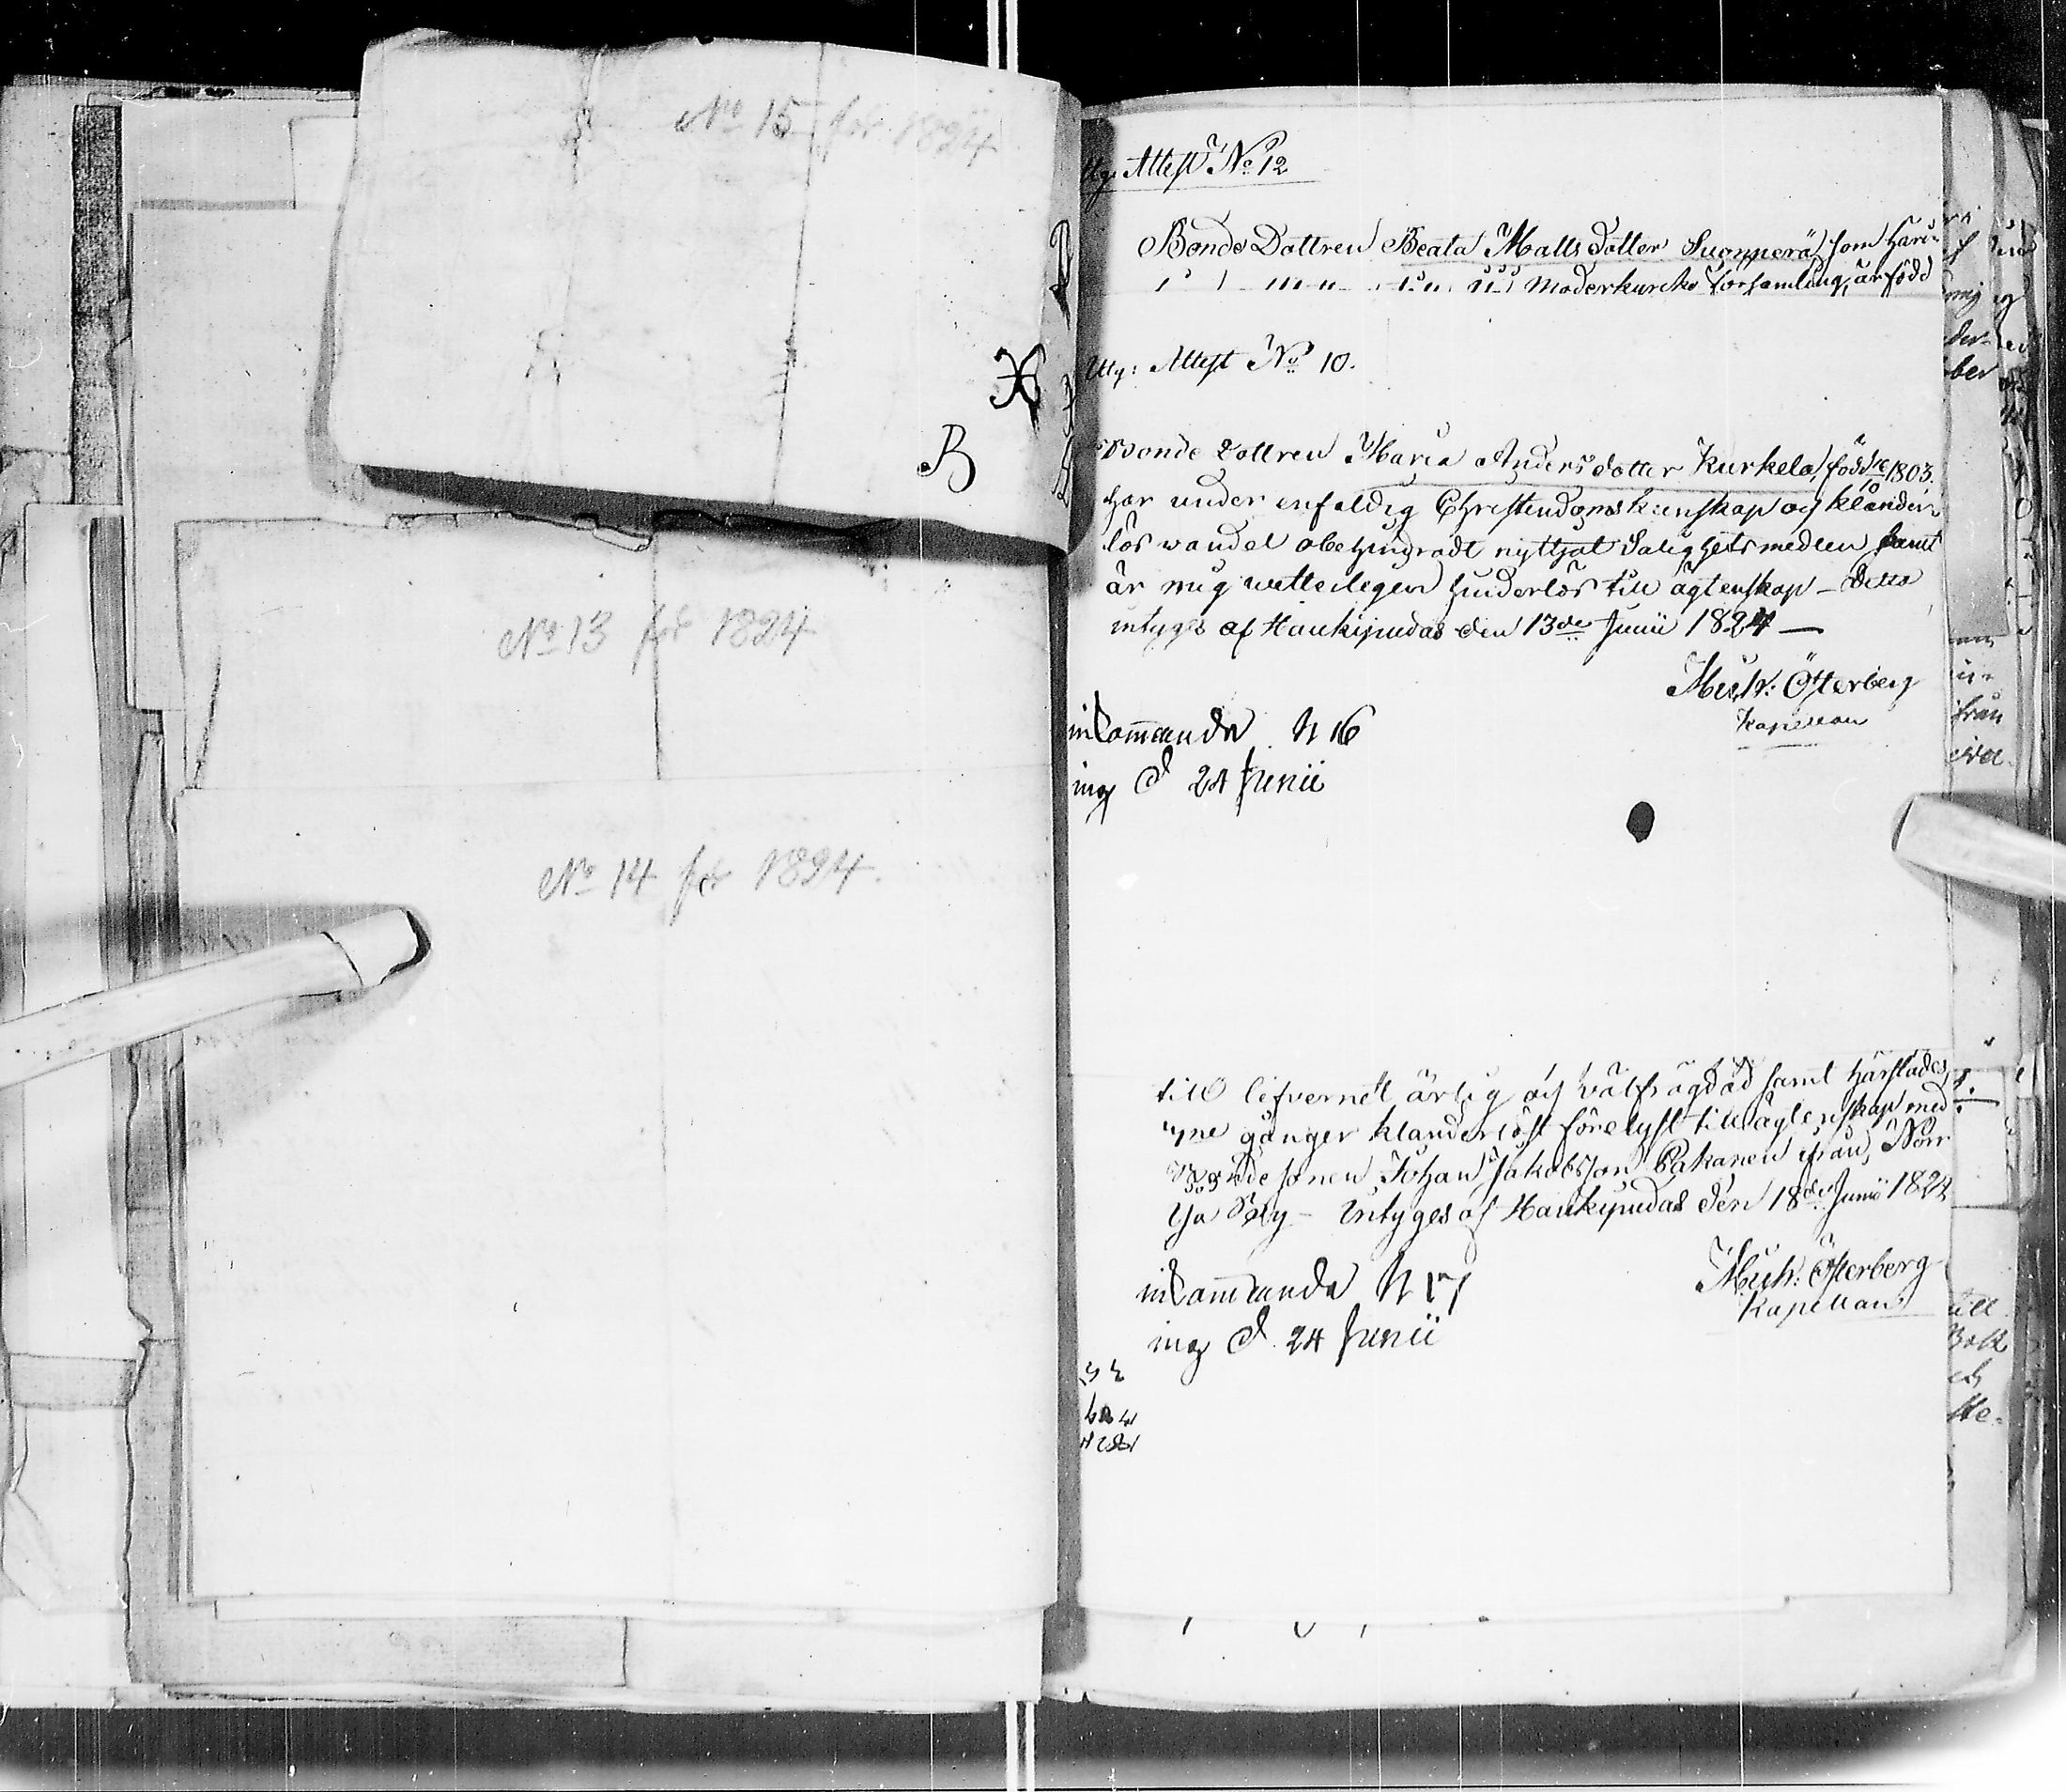 No 15 för 1824
B
No 13 för 1824
No 14 för 1824.
Utg: Attest No 12
Bonde Dottren Beata Matts dotter Suonperä, som härv
moderkyrko församling, är född
Utg: Attest No 10.
Bonde Dottren Maria Anders dotter Kurkela, född 1803.
har under enfaldig Christendoms kunskap och klander
lös wandel obehindradt nyttjat Salighets medlen samt
är mig vetterligen hinderlös till ägtenskap – Detta
intygas af Haukipudas den 13de Junii 1824 —
Mich: Österberg
Kapellan
inkommande N 16
ing d 24 Junii
till lefvernet ärlig och välfrägdad samt härstädes
gånger klanderlöst förelyst till ägtenskap med
Bonde sonen Johan Jakobsson Pakanen ifrån Norr
Ijo By – Intygas af Haukipudas den 18de Junii 1824
Mich: Österberg
Kapellan
inkommande N 17
ing d. 24 Junii